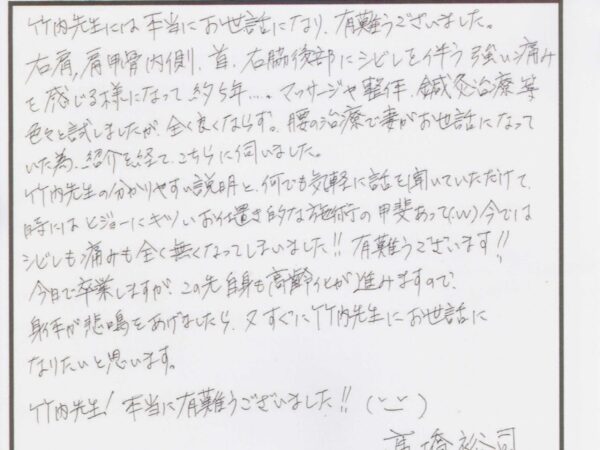 竹内先生には本当にお世話になり、有難うございました。
右肩、肩甲骨内側、首、右脇後部にシビレを伴う強い痛み
を感じる様になって約5年…。マッサージや整体、鍼灸治療等
色々と試しましたが、全く良くならず。腰の治療で妻がお世話になって
いた為、紹介を経て、こちらに伺いました。
竹内先生の分かりやすい説明と、何でも気軽に話を聞いていただけて、
時にはヒジョーにキツいお仕置き的な施術の甲斐あって(w)今では
シビレも痛みも全く無くなってしまいました!! 有難うございます!!
今日で卒業しますが、この先自身も高齢化が進みますので、
身体が悲鳴をあげましたら、又すぐに竹内先生にお世話に
なりたいと思います。
竹内先生! 本当に有難うございました!!
髙橋裕司